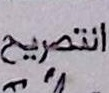 انتصريح